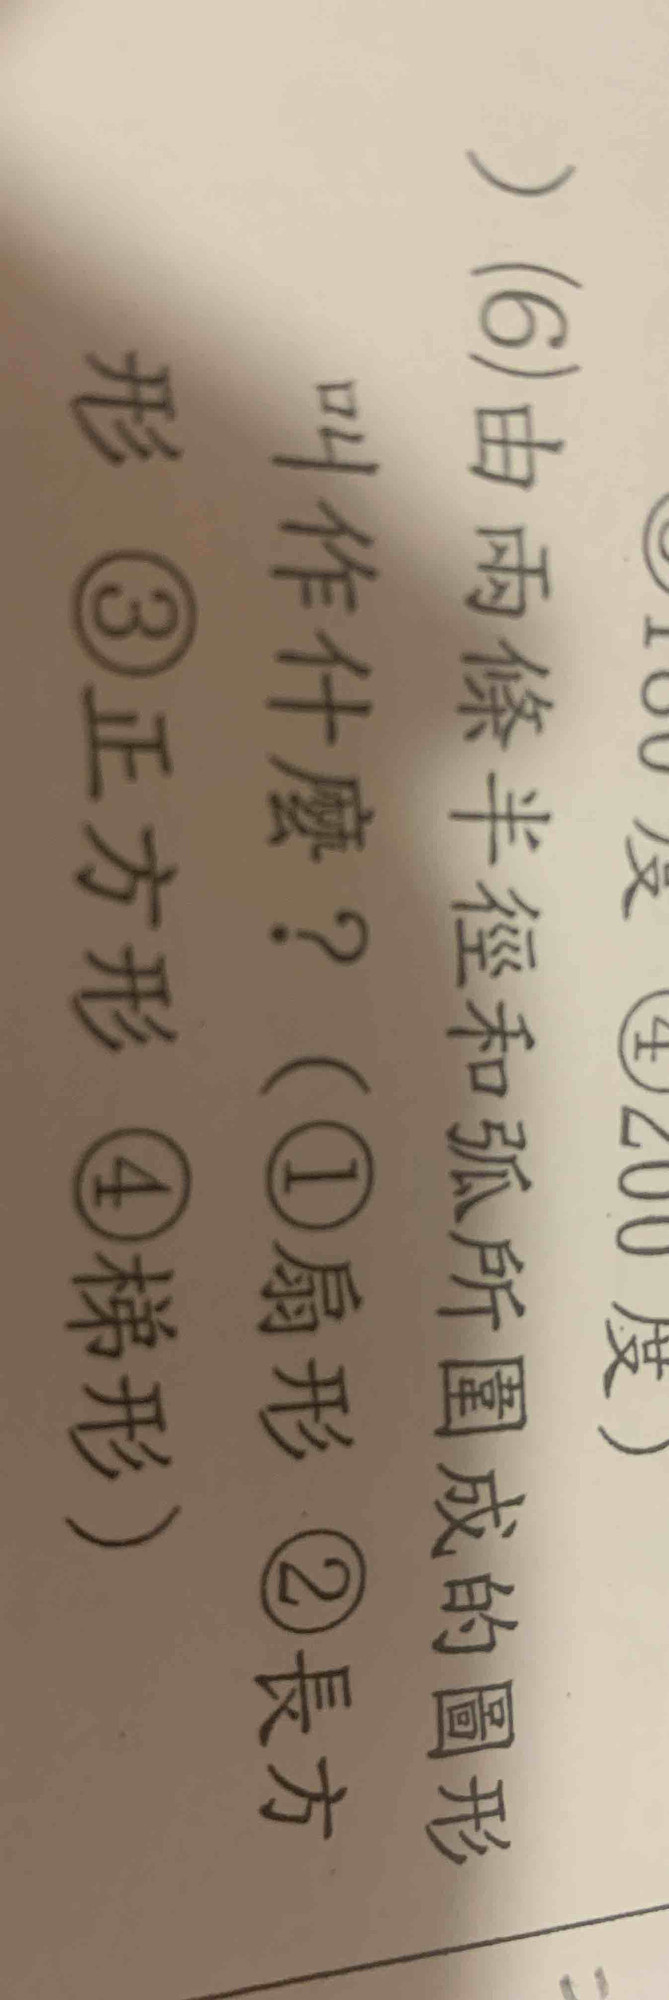 180度 ④200度）
）(6)由兩條半徑和弧所圍成的圖形
叫作什麼？（①扇形 ②長方
形 ③正方形 ④梯形）